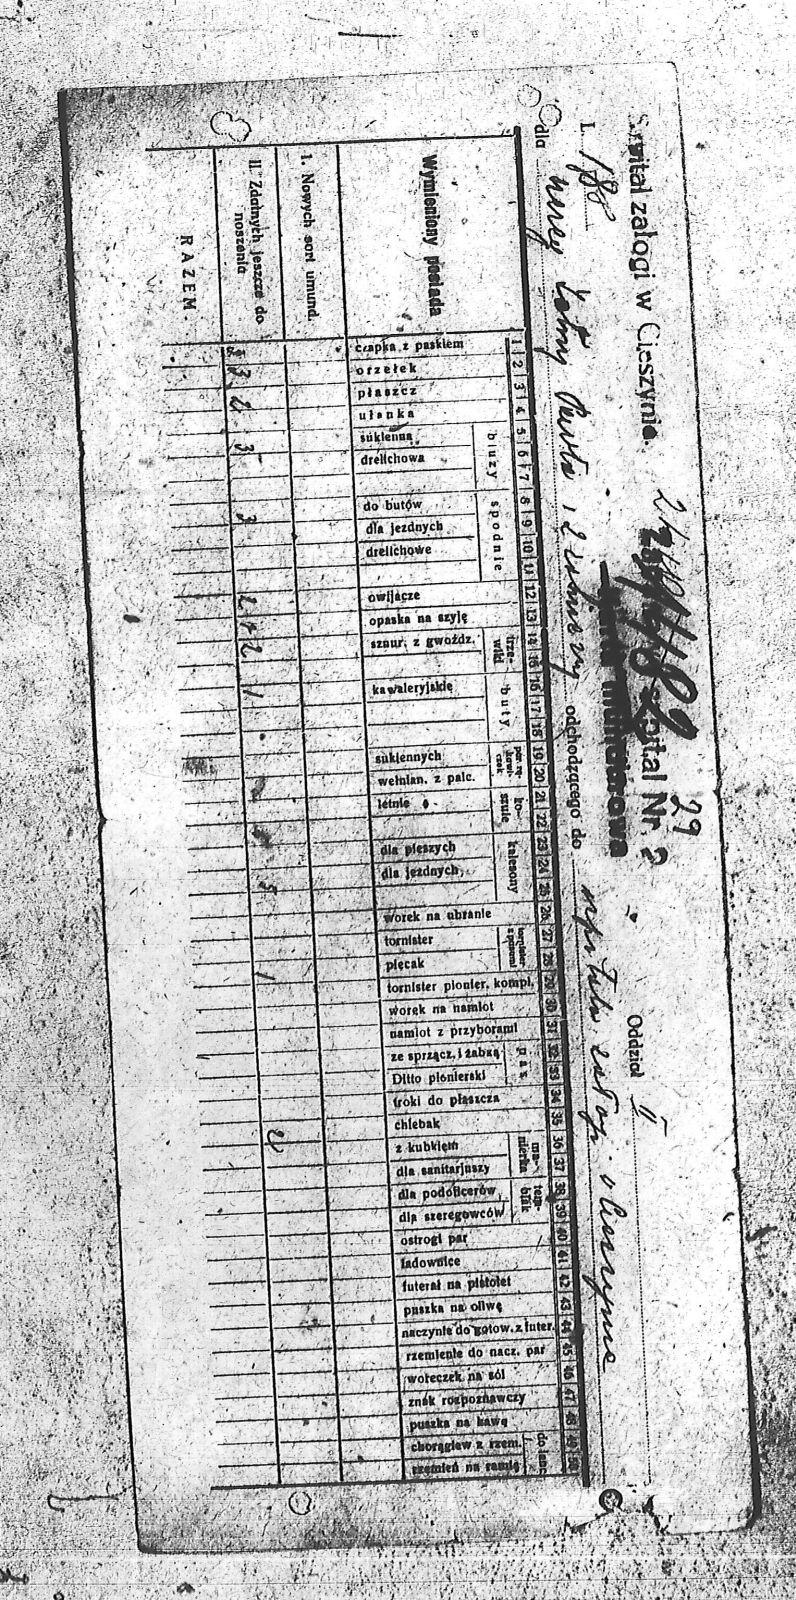 Szpital załogi w Cieszynie.
Szpital Nr. 2
Oddział II
L. 180
Karta mundurowa
29
dla Pawła odchodzącego do szpitala załogi w Cieszynie
Wymieniony posiada
1. Nowych sort umund.
II. Zdatnych jeszcze do noszenia
RAZEM
1 czapka z paskiem
2 orzełek 3
3 płaszcz 2
4 ułanka
bluzy
5 sukienna 3
6 drelichowa
7
spodnie
8 do butów 3
9 dla jezdnych
10 drelichowe
11
12 owijacze 2+2
13 opaska na szyję
trzewiki
14 sznur. z gwoźdz.
15
buty
16 kawaleryjskie
17
18
par rękawiczek
19 sukiennych
20 wełnian. z palc.
koszule
21 letnie
22
kalesony
23 dla pieszych
24 dla jezdnych
25
26 worek na ubranie
27 tornister
28 plecak
29 tornister pionier. kompl.
30 worek na namiot
31 namiot z przyborami
pas
32 ze sprzącz. i żabką
33 Ditto pionierski
34 troki do płaszcza
35 chlebak
manierka
36 z kubkiem
37 dla sanitarjuszy
temblak
38 dla podoficerów
39 dla szeregowców
40 ostrogi par
41 ładownice
42 futerał na pistolet
43 puszka na oliwę
44 naczynie do gotow. z futer.
45 rzemienie do nacz. par
46 woreczek na sól
47 znak rozpoznawczy
48 puszka na kawę
do lanc
49 chorągiew z rzem.
50 rzemień na ramię